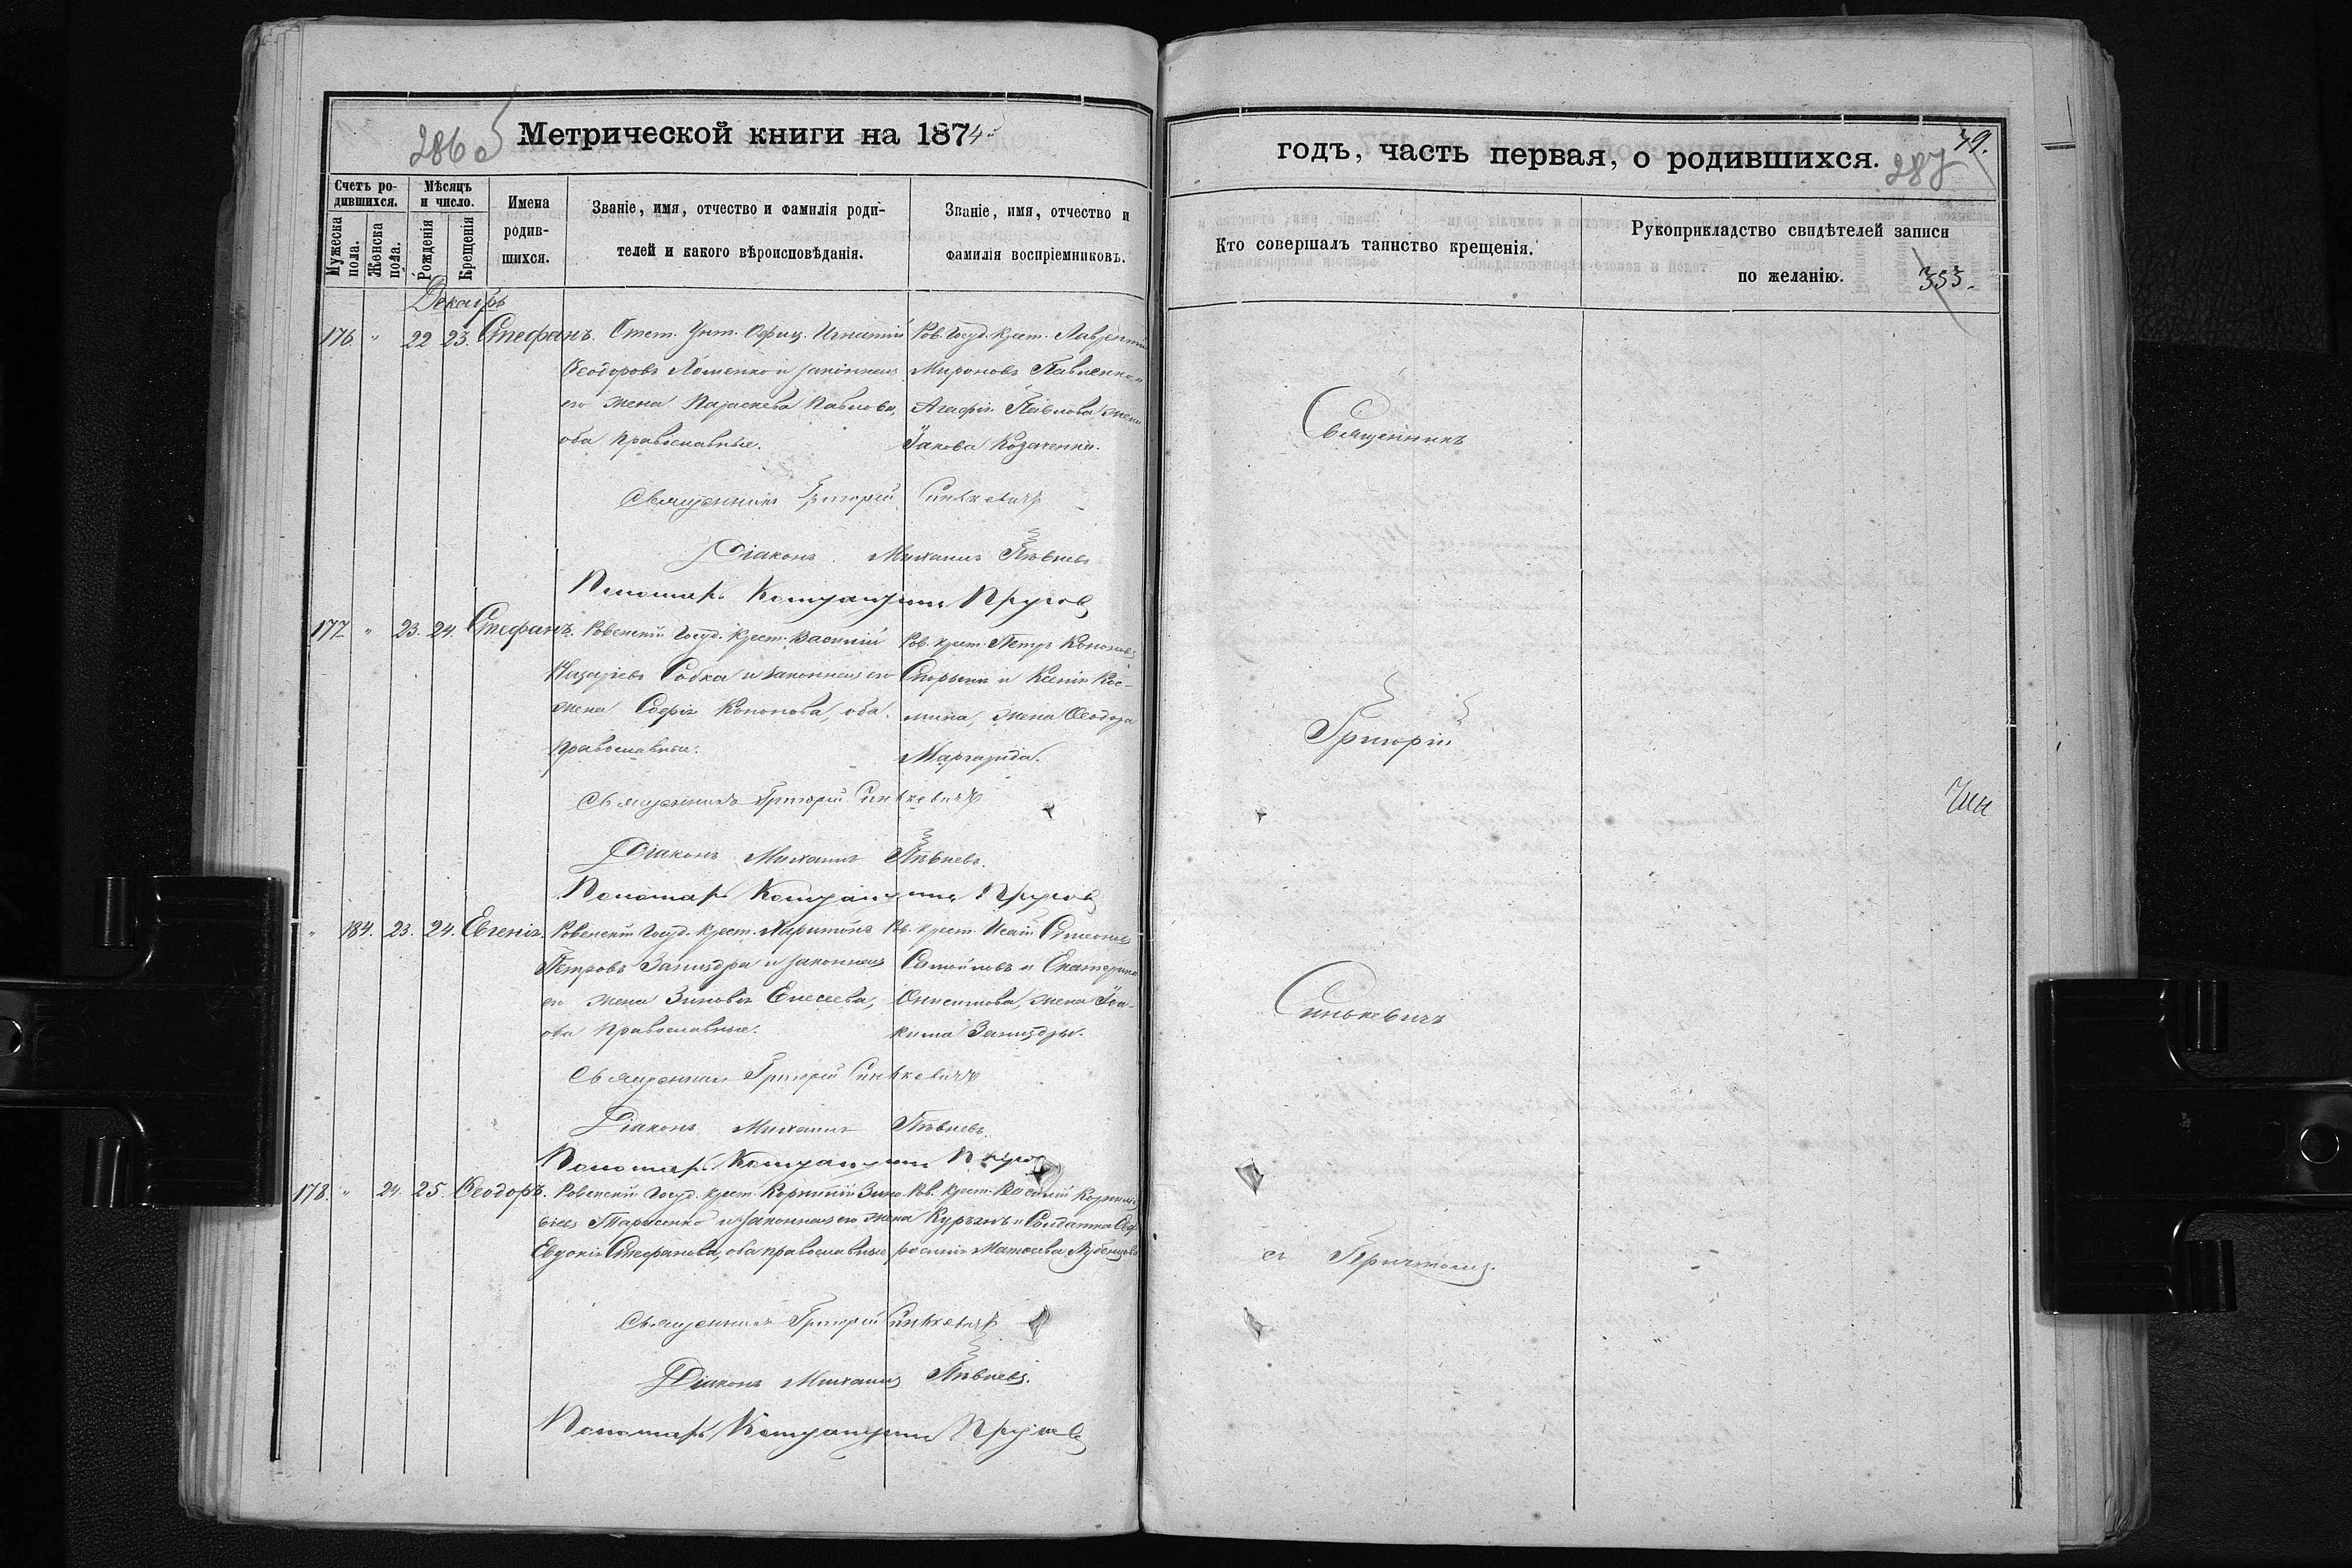 286
Метрической книги на 1874
Счетъ родившихся.
Мужеска пола.
Женска пола.
Мѣсяцъ и число.
Рожденія
Крещенія
Имена родившихся.
Званіе, имя, отчество и фамилія роди-
телей и какого вѣроисповѣданія.
Званіе, имя, отчество и
фамилія воспріемниковъ.
176 " 22 23. Стефанъ. Отст. Унт. Офиц. Игнатій
Ѳеодоровъ и законная
его жена Параскева Павлова,
оба православные.
Ров. Госуд. Крест. Лаврентій
Мироновъ Павленко и
Агафія Павлова жена
Іакова Козаченка.
Священникъ Григорій Синькевичъ
Діаконъ Михаилъ Пѣвневъ
Пономарь Пруговъ
177 " 23. 24. Стефанъ. Ровенскій Госуд. Крест. Василій
Назаріевъ Собка и законная его
жена Софія Кононова, оба
православные.
Ров. крест. Петръ Кононовъ
и Ксенія Кос-
мина, жена Ѳеодора
Маргарида.
Священникъ Григорій Синькевичъ
Діаконъ Михаилъ Пѣвневъ.
Пономарь Пруговъ
" 184. 23. 24. Евгенія. Ровенскій Госуд. Крест. Харитонъ
Петровъ Заниздра и законная
его жена Зиновія Елесеева,
оба православные.
Ров. крест. Исаій Симеоновъ
Самойловъ и Екатерина
Онисимова, жена Іоа-
кима Заниздры.
Священникъ Григорій Синькевичъ
Діаконъ Михаилъ Пѣвневъ.
Пономарь
178. " 24. 25. Ѳеодоръ. Ровенскій Госуд. крест. Корнилій Зино-
віевъ Тарасенко и законная его жена
Евдокія Стефанова, оба православные
Ров. Крест. Василій
и Солдатка Евф-
росинія Матѳеева
Священникъ Григорій Синькевичъ
Діаконъ Михаилъ Пѣвневъ.
Пономарь Пруговъ
годъ, часть первая, о родившихся.
79.
287
Кто совершалъ таинство крещенія.
Рукоприкладство свидѣтелей записи
по желанію.
353.
Священникъ
Григорій
Синькевичъ
съ Причтомъ.